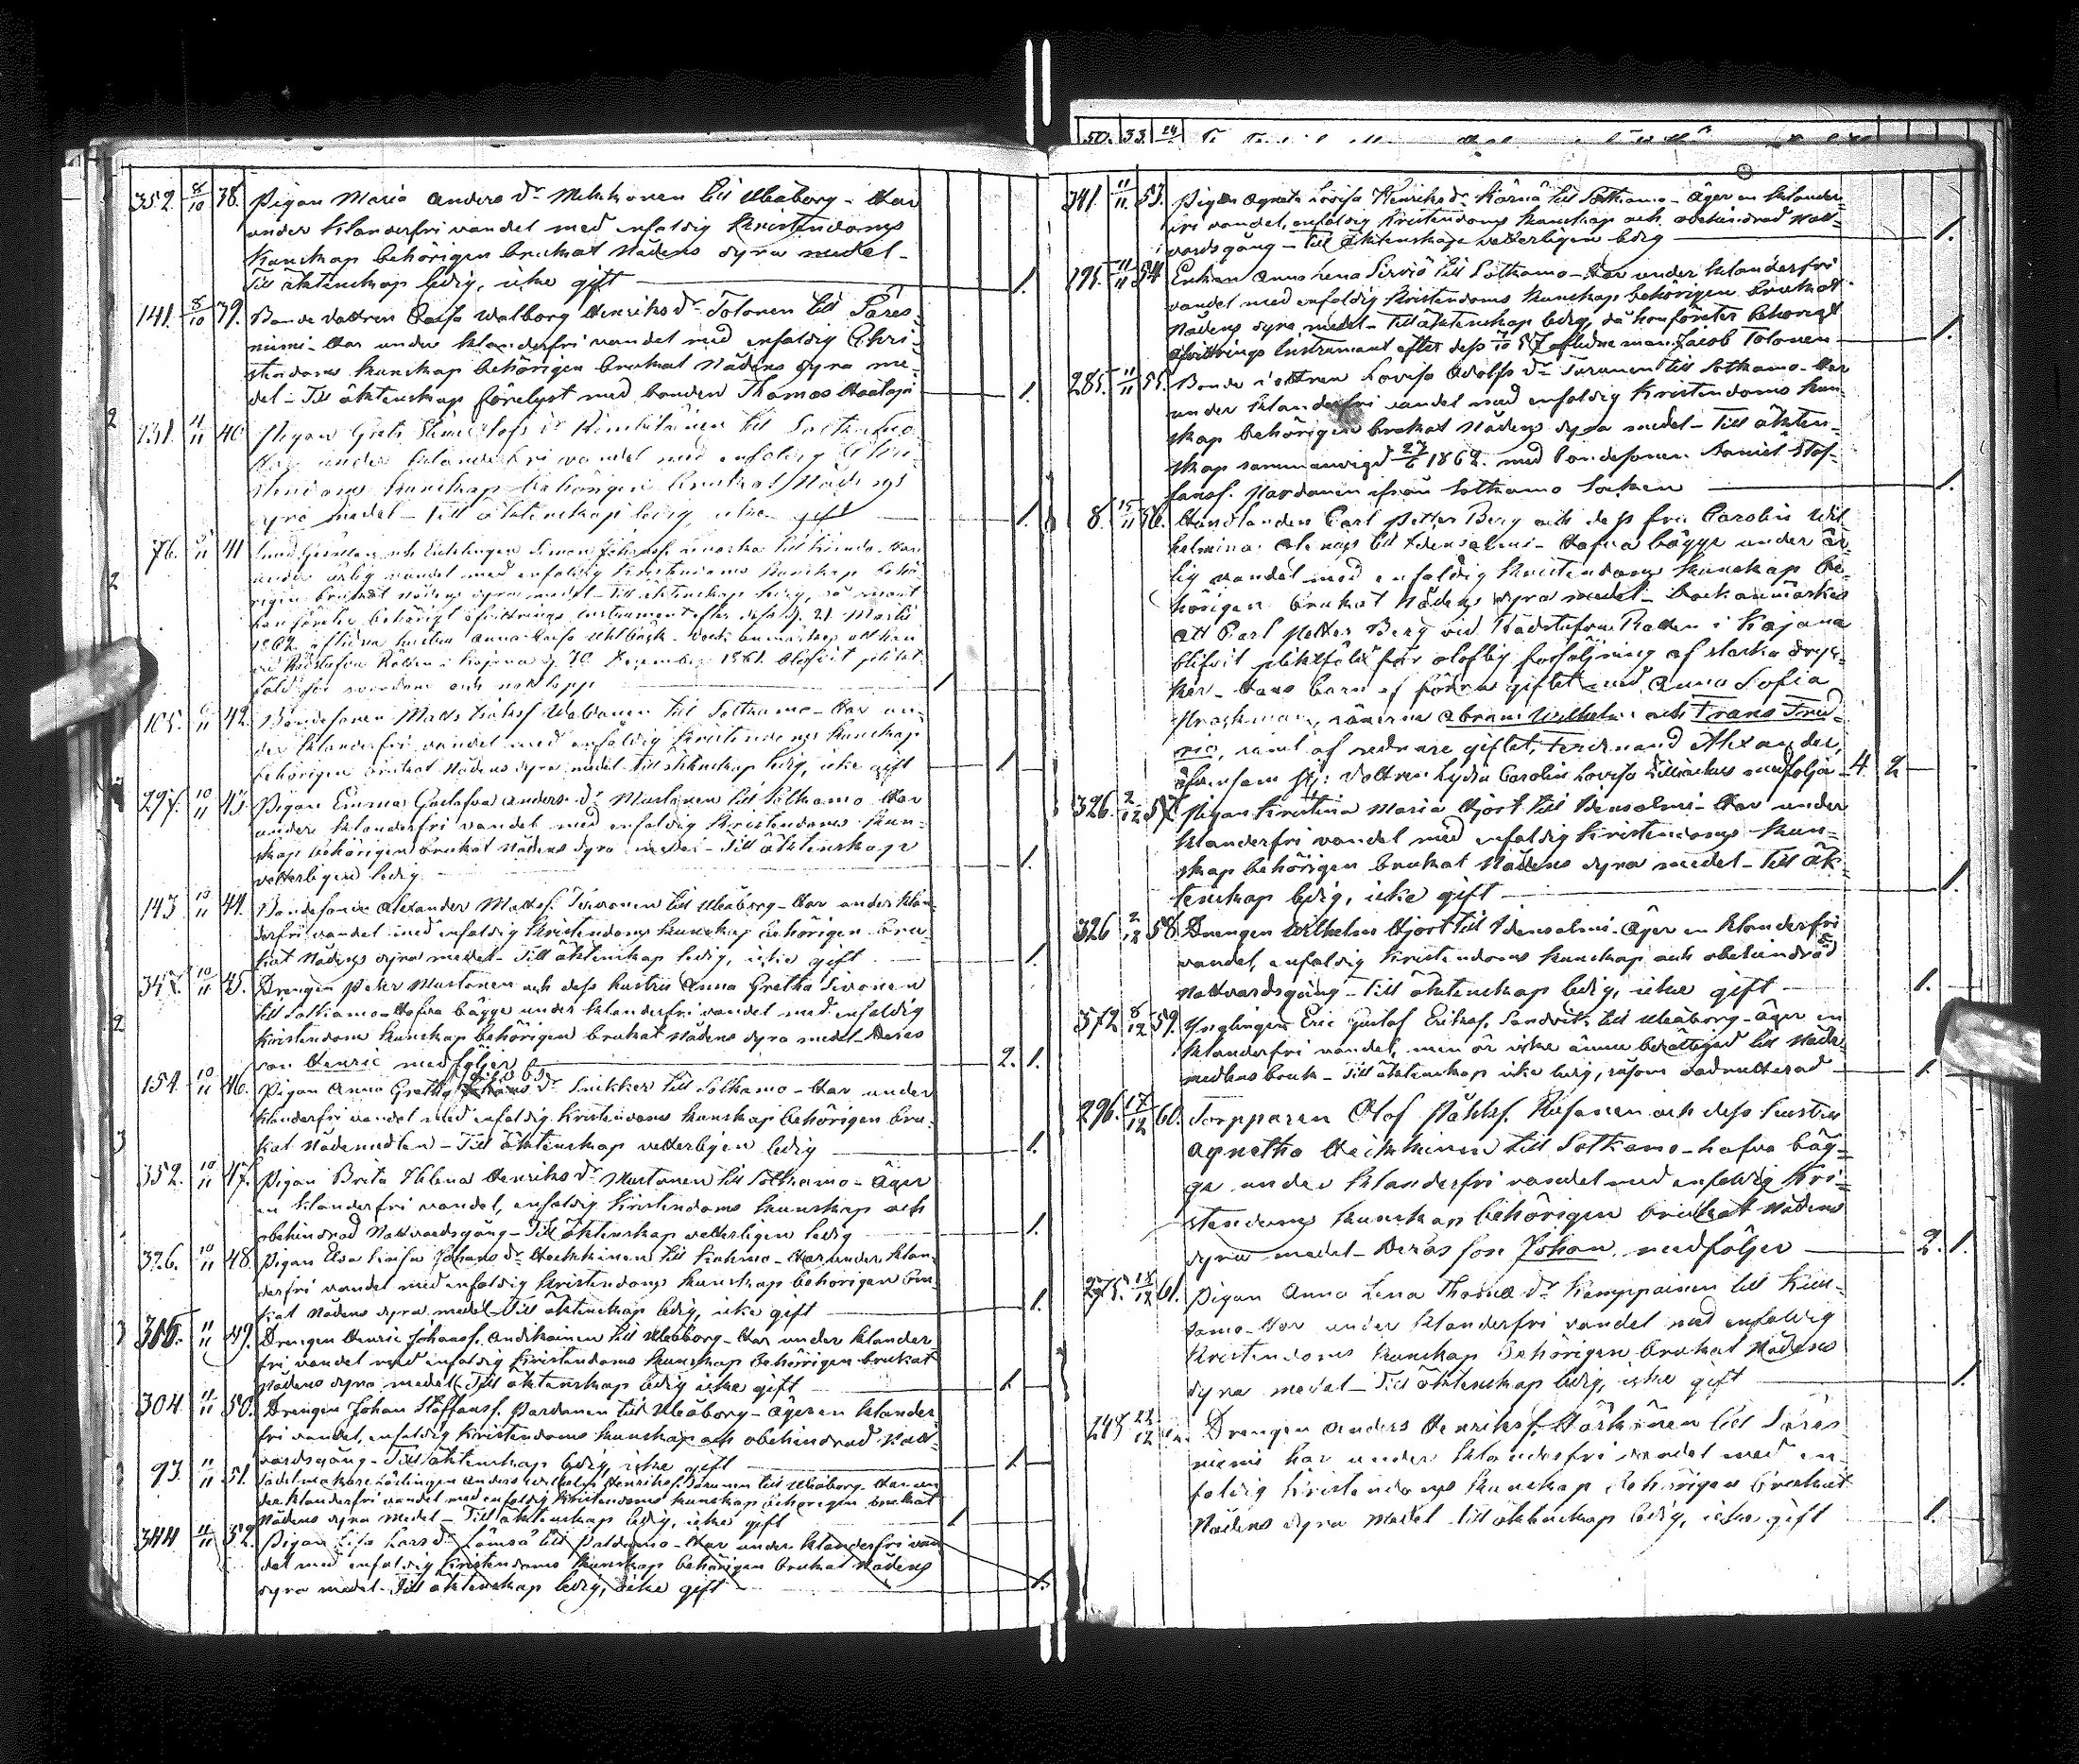 352. 8/10 38. Pigan Maria Anders dr Mikkonen till Uleåborg - Har
under klanderfri vandel med enfaldig Kristendoms
kunskap behörigen brukat Nådens dyra medel -
Till äktenskap ledig, icke gift 1.
141. 8/10 39. Bonde dottren Caisa Walborg Henriks dr Tolonen till Säres-
niemi - Har under klanderfri vandel med enfaldig Chri-
stendoms kunskap behörigen brukat Nådens dyra me-
del - Till äktenskap förelyst med bonden Thomas 1.
40. Pigan Greta till Sotkamo
Har under klanderfri vandel med enfaldig Chri-
stendoms kunskap behörigen brukat Nådens
dyra medel - Till äktenskap ledig, icke gift 1.
76. 41 och Enklingen Simon till
under ärlig vandel med enfaldig Kristendoms kunskap behö-
rigen brukat nådens dyra medel - Till äktenskap ledig, så snart
han företer behörigt afvittrings instrument efter d. 21 Martii
1862 aflidna hustru Anna Caisa - att han
vid Rådstufvu Rätten i Kajana d. 30 December 1861 blifvit plikt-
fäld för svordom och 1
105. 42. Bondesonen Matts till Sotkamo - Har un-
der klanderfri vandel med enfaldig Kristendoms kunskap
behörigen brukat Nådens dyra medel - Till äktenskap ledig, icke gift 1.
297. 10/11 43. Pigan Emma Gustafva Anders dr Mustonen till Sotkamo - Har
under klanderfri vandel med enfaldig Kristendoms kun-
skap behörigen brukat Nådens dyra medel - Till äktenskap
vetterligen ledig 1.
143 10/11 44. Bondesonen Alexander Mattsf. till Uleåborg - Har under klan-
derfri vandel med enfaldig Kristendoms kunskap behörigen bru-
kat Nådens dyra medel - Till äktenskap ledig, icke gift 1.
10/11 45. Drengen Peter Mustonen och dess hustru Anna Gretha Sivonen
till Sotkamo - Hafva bägge under klanderfri vandel med enfaldig
Kristendoms kunskap behörigen brukat nådens dyra medel - Deras
son Henric medföljer 2. 1.
154. 10/11 46. Pigan Anna Gretha dr till Sotkamo - Har under
klanderfri vandel med enfaldig Kristendoms kunskap behörigen bru-
kat Nådemedlen - Till äktenskap vetterligen ledig 1.
352. 10/11 47. Pigan Brita Helena Henriks dr Mustonen till Sotkamo - Äger
en klanderfri vandel, enfaldig Kristendoms kunskap och
obehindrad Nattvardsgång - Till äktenskap vetterligen ledig 1.
326. 10/11 48. Pigan Eva Caisa Johans dr Heikkinen till Kuhmo - Har under klan-
derfri vandel med enfaldig Kristendoms kunskap behörigen bru-
kat Nådens dyra medel - Till äktenskap ledig, icke gift 1.
11/11 49. Drengen Henric Johansf. till Uleåborg - Har under klander
fri vandel med enfaldig Kristendoms kunskap behörigen brukat
Nådens dyra medel - Till äktenskap ledig icke gift 1.
304 11/11 50. Drengen Johan Staffansf. Pardanen till Uleåborg - Äger en klander-
fri vandel, enfaldig Kristendoms kunskap och obehindrad Natt-
vardsgång - Till äktenskap ledig, icke gift 1.
93. 11/11 51. Sadelmakare Lärlingen Anders Wilhelm Henriksf. till Uleåborg - Har un
der klanderfri vandel med enfaldig Kristendoms kunskap behörigen brukat
Nådens dyra medel - Till äktenskap ledig, icke gift 1
344 11/11 52. Pigan Lisa Lars dr Lämsä till Paldamo - Har under klanderfri van
del med enfaldig Kristendoms kunskap behörigen brukat Nådens
dyra medel - Till äktenskap ledig, icke gift 1.
50. 33. 24
341. 11/11 53. Pigan Agneta Lovisa Henriks dr Kärnä till Sotkamo - Äger en klander-
fri vandel, enfaldig Kristendoms kunskap och obehindrad Natt-
vardsgång - Till äktenskap vetterligen ledig 1.
195. 11/11 54 Enkan Anna Lena Sirviö till Sotkamo - Har under klanderfri
vandel med enfaldig Kristendoms kunskap behörigen brukat
Nådens dyra medel - Till äktenskap ledig, då hon företer behörigt
afvittrings Instrument efter dess aflidne man Jacob Tolonen 1.
285. 11/11 55. Bonde dottren Lovisa Adolfs dr Turunen till Sotkamo - Har
under klanderfri vandel med enfaldig Kristendoms kun-
skap behörigen brukat Nådens dyra medel - Till äkten-
skap sammanvigd 27/6 1862. med bondesonen Daniel Staf-
fansf. Pardanen ifrån Sotkamo Socken 1.
8. 15/11 56. Handlanden Carl Petter Berg och dess fru Carolin Wil
helmina till Idensalmi - Hafva bägge under är-
lig vandel med enfaldig Kristendoms kunskap be-
hörigen brukat Nådens dyra medel - Dock anmärkes
att Carl Petter Berg vid Rådstufvu Rätten i Kajana
blifvit pliktfäld för oloflig försäljning af starka dryc-
ker - Hans barn af förra giftet med Anna Sofia
sönerna Abram Wilhelm och Frans Fred-
ric, samt af sednare giftet, Ferdinand Alexander,
dottren Lydia Carolin Lovisa medfölja 4. 2
326. 2/12 57. Pigan Kristina Maria Hjort till Idensalmi - Har under
klanderfri vandel med enfaldig Kristendoms kun-
skap behörigen brukat Nådens dyra medel - Till äk-
tenskap ledig, icke gift 1.
326 2/12 58. Drengen Wilhelm Hjort till Idensalmi - Äger en klanderfri
vandel, enfaldig Kristendoms kunskap och obehindrad
Nattvardsgång - Till äktenskap ledig, icke gift 1.
372 8/12 59. Ynglingen Eric Gustaf Eriksf. Sandvik till Uleåborg - Äger en
klanderfri vandel, men är icke ännu berättigad till Nåde-
medlens bruk - Till äktenskap icke ledig, såsom oadmitterad 1.
296. 17/12 60. Torpparen Olof Påhlsf. och dess hustru
Agnetha Heikkinen till Sotkamo - hafva bäg-
ge under klanderfri vandel med enfaldig Kri-
stendoms kunskap behörigen brukat Nådens
dyra medel - Deras son Johan medföljer 2. 1.
275. 18/12 61. Pigan Anna Lena Thomas dr Kemppainen till Kuu-
samo - Har under klanderfri vandel med enfaldig
Kristendoms kunskap behörigen brukat Nådens
dyra medel - Till äktenskap ledig, icke gift 1.
248 22/12 62. Drengen Anders Henriksf. Härkönen till Säres-
niemi har under klanderfri vandel med en-
faldig Kristendoms kunskap behörigen brukat
Nådens dyra medel till äktenskap ledig, icke gift 1.